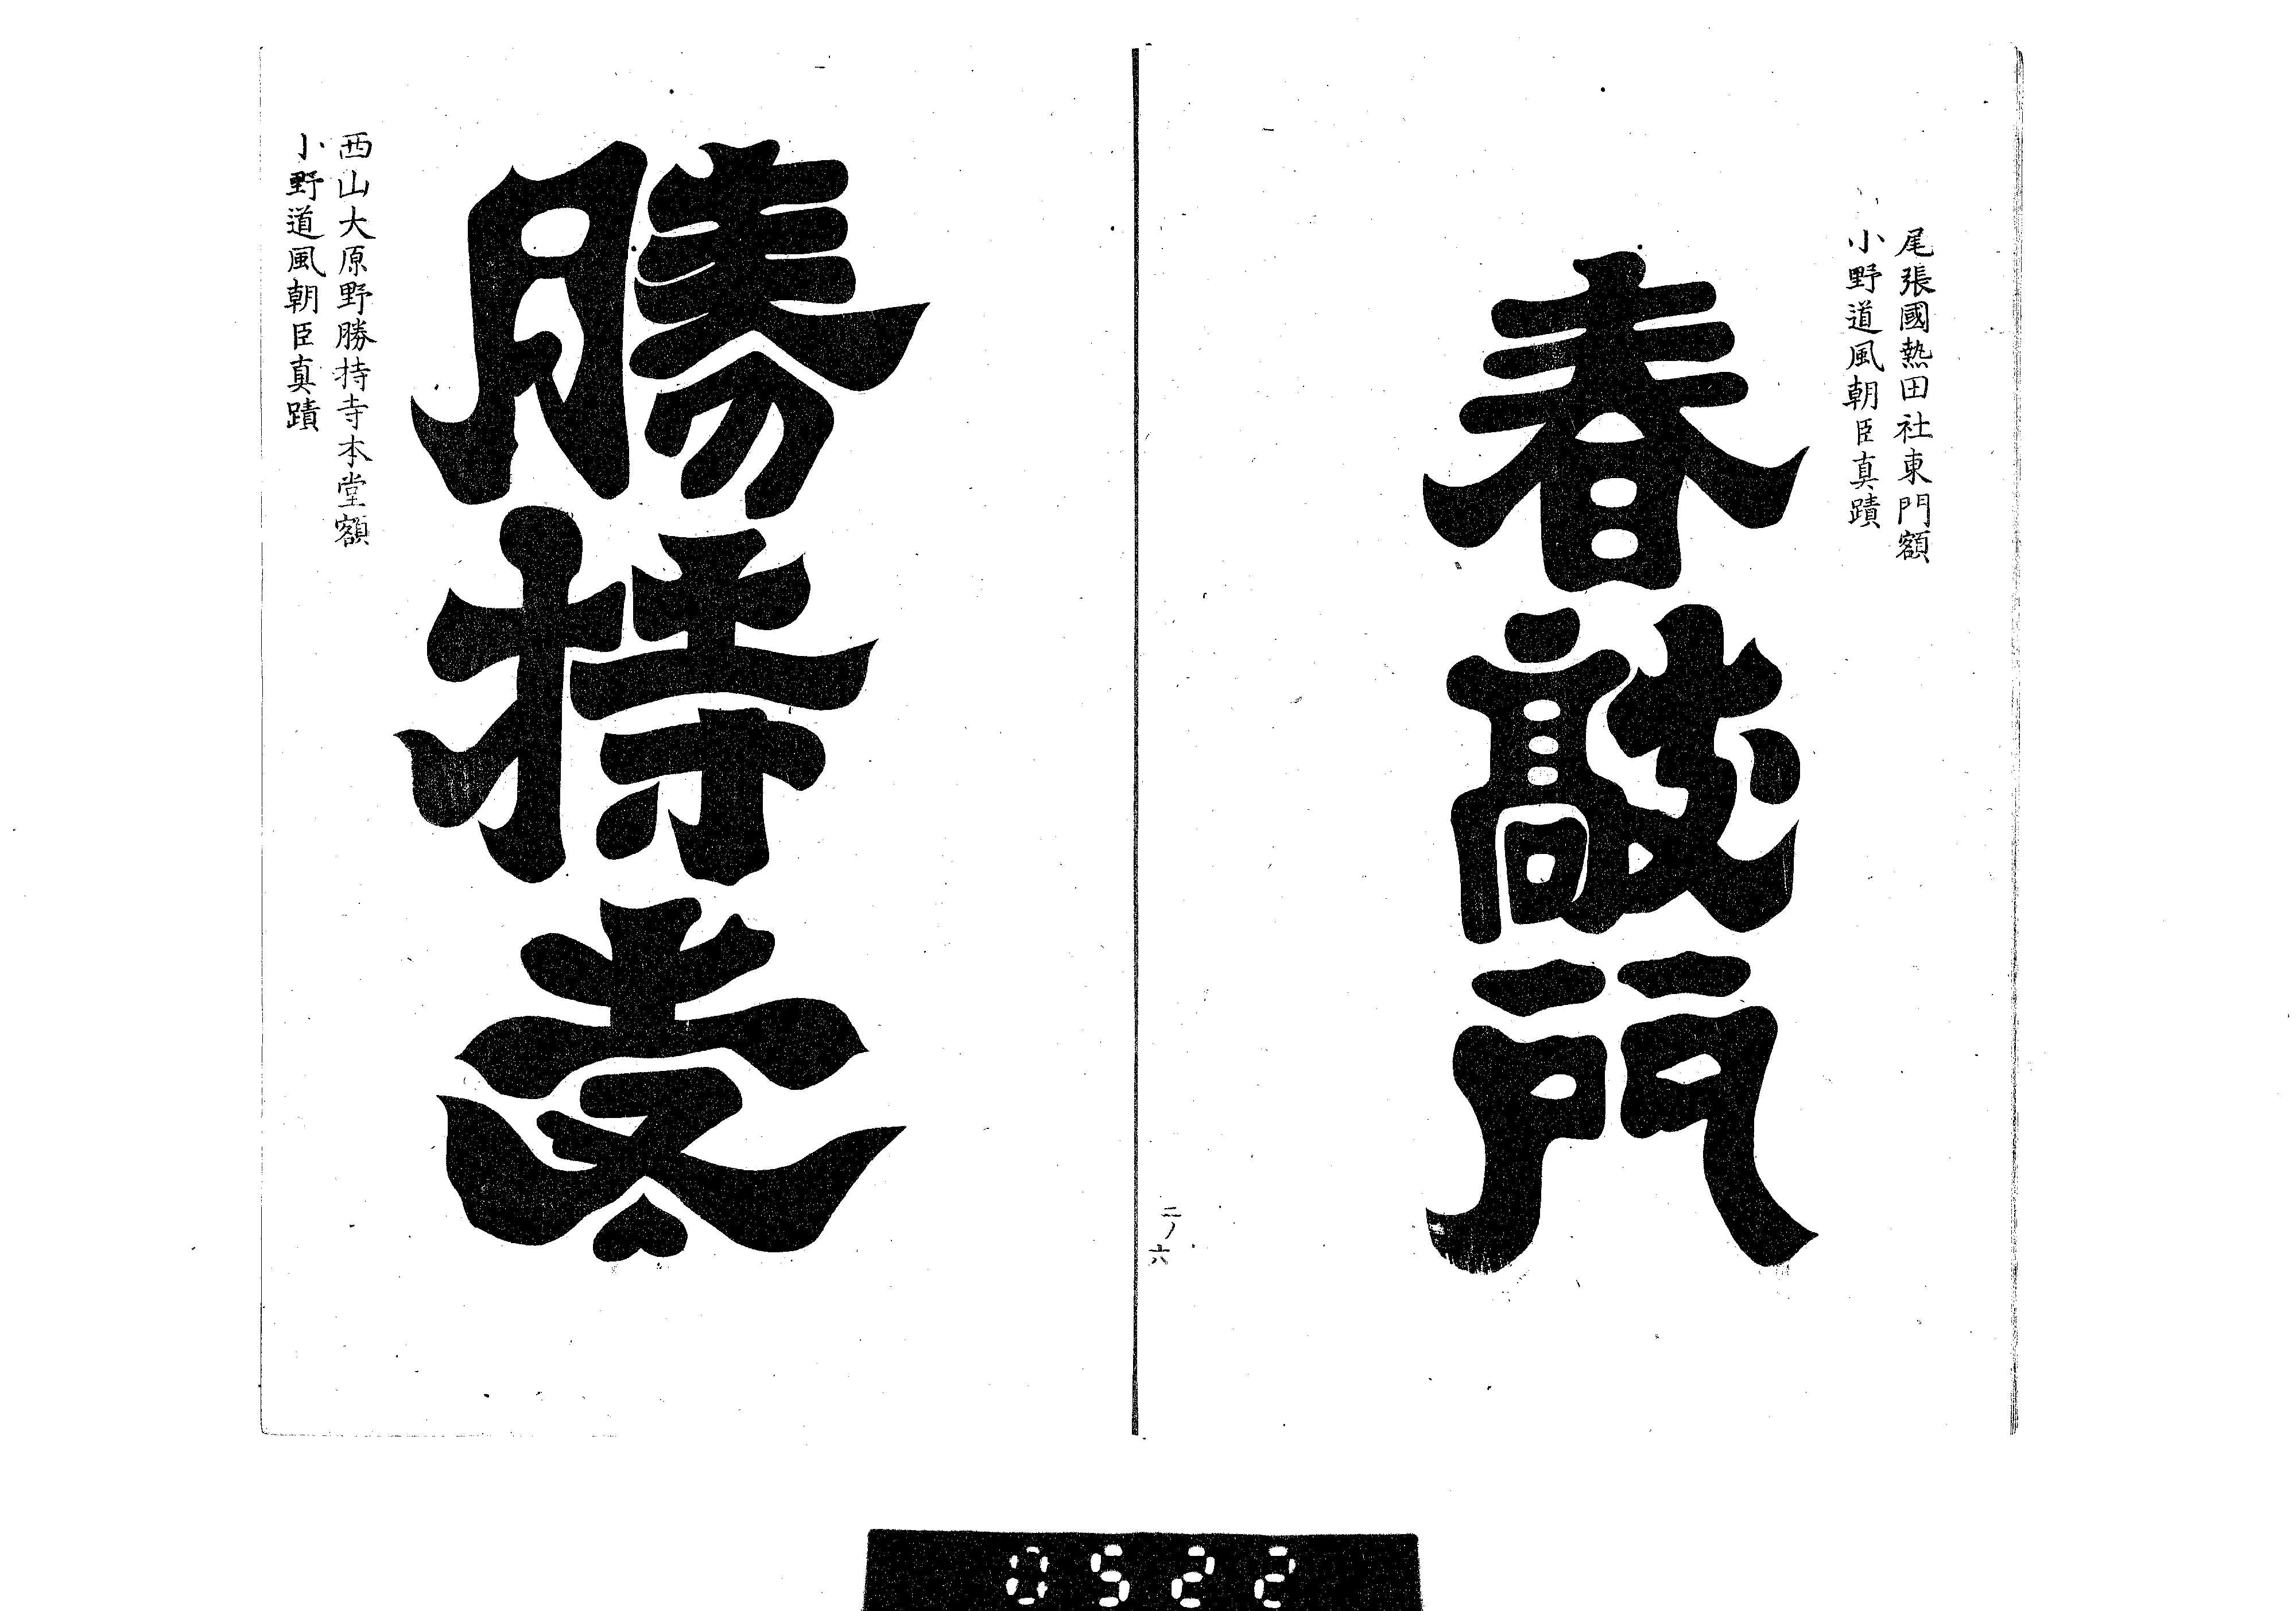 尾張國熱田社東門額
小野道風朝臣真蹟
春敲門
二ノ六
勝持寺
西山大原野勝持寺本堂額
小野道風朝臣真蹟
0522